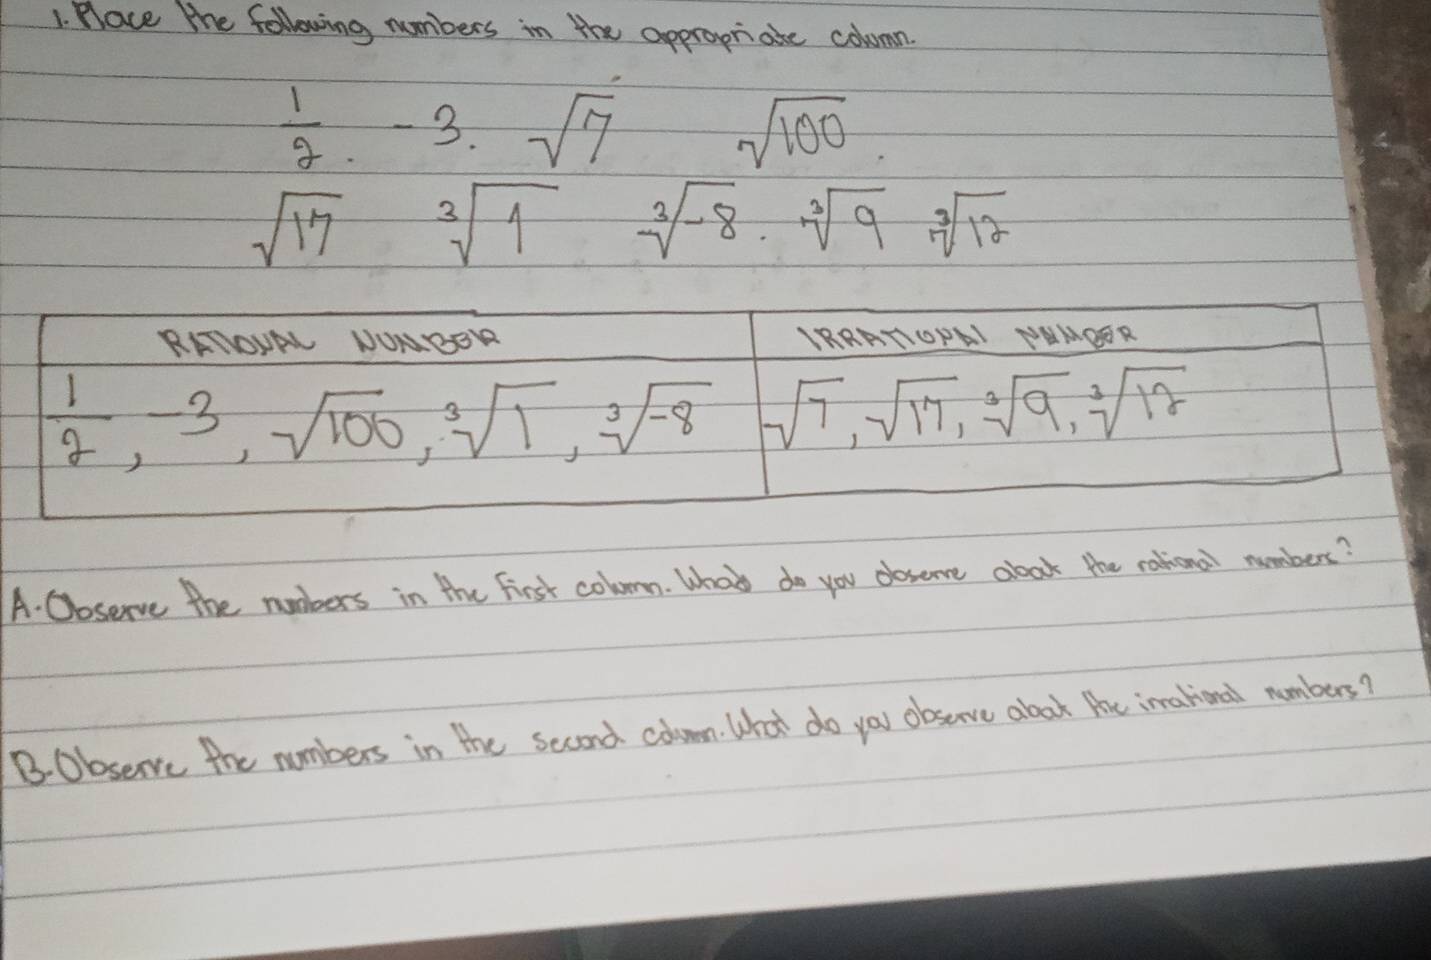 1. Place the following numbers in the appropriate column.
1/2. -3. √7 √100.
√17 ∛1 ∛-8. ∛9 ∛12
RATIONAL NUMBER IRRATIONAL NUMBER
1/2, -3, √100, ∛1, ∛-8 √7, √17, ∛9, ∛12
A. Observe the numbers in the first column. What do you observe about the rational numbers?
B. Observe the numbers in the second column. What do you observe about the irrational numbers?